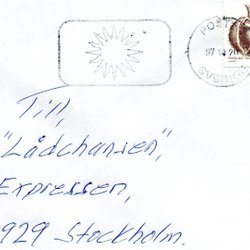 POST
97 10 20
SVERIGE
Till,
"Lådchansen",
Expressen,
929 Stockholm.